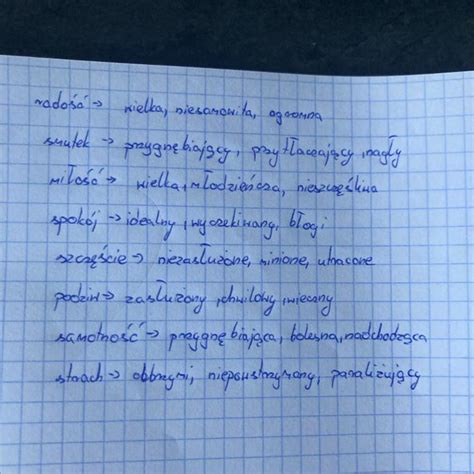 radość → wielka, niesamowita, ogromna
smutek → przygnębiający, przytłaczający, nagły
miłość → wielka, młodzieńcza, nieszczęśliwa
spokój → idealny, wyczekiwany, błogi
szczęście → niezasłużone, minione, utracone
podziw → zasłużony, chwilowy, wieczny
samotność → przygnębiająca, bolesna, nadchodząca
strach → olbrzymi, niepowstrzymany, paraliżujący